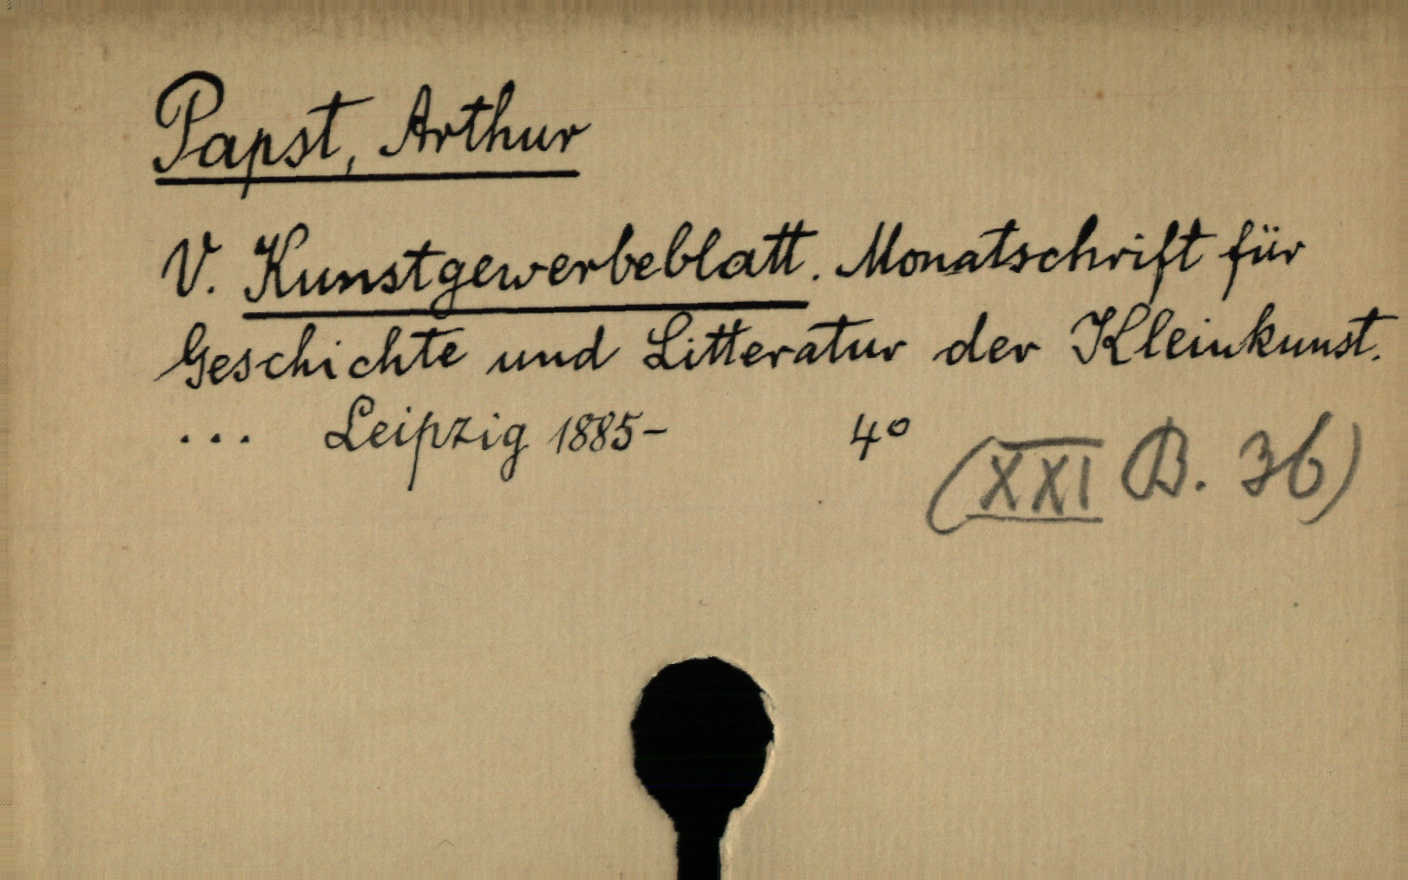 Papst, Arthur
V. Kunstgewerbeblatt. Monatschrift für
Geschichte und Litteratur der Kleinkunst.
... Leipzig 1885- 4°
(XXI B. 36)